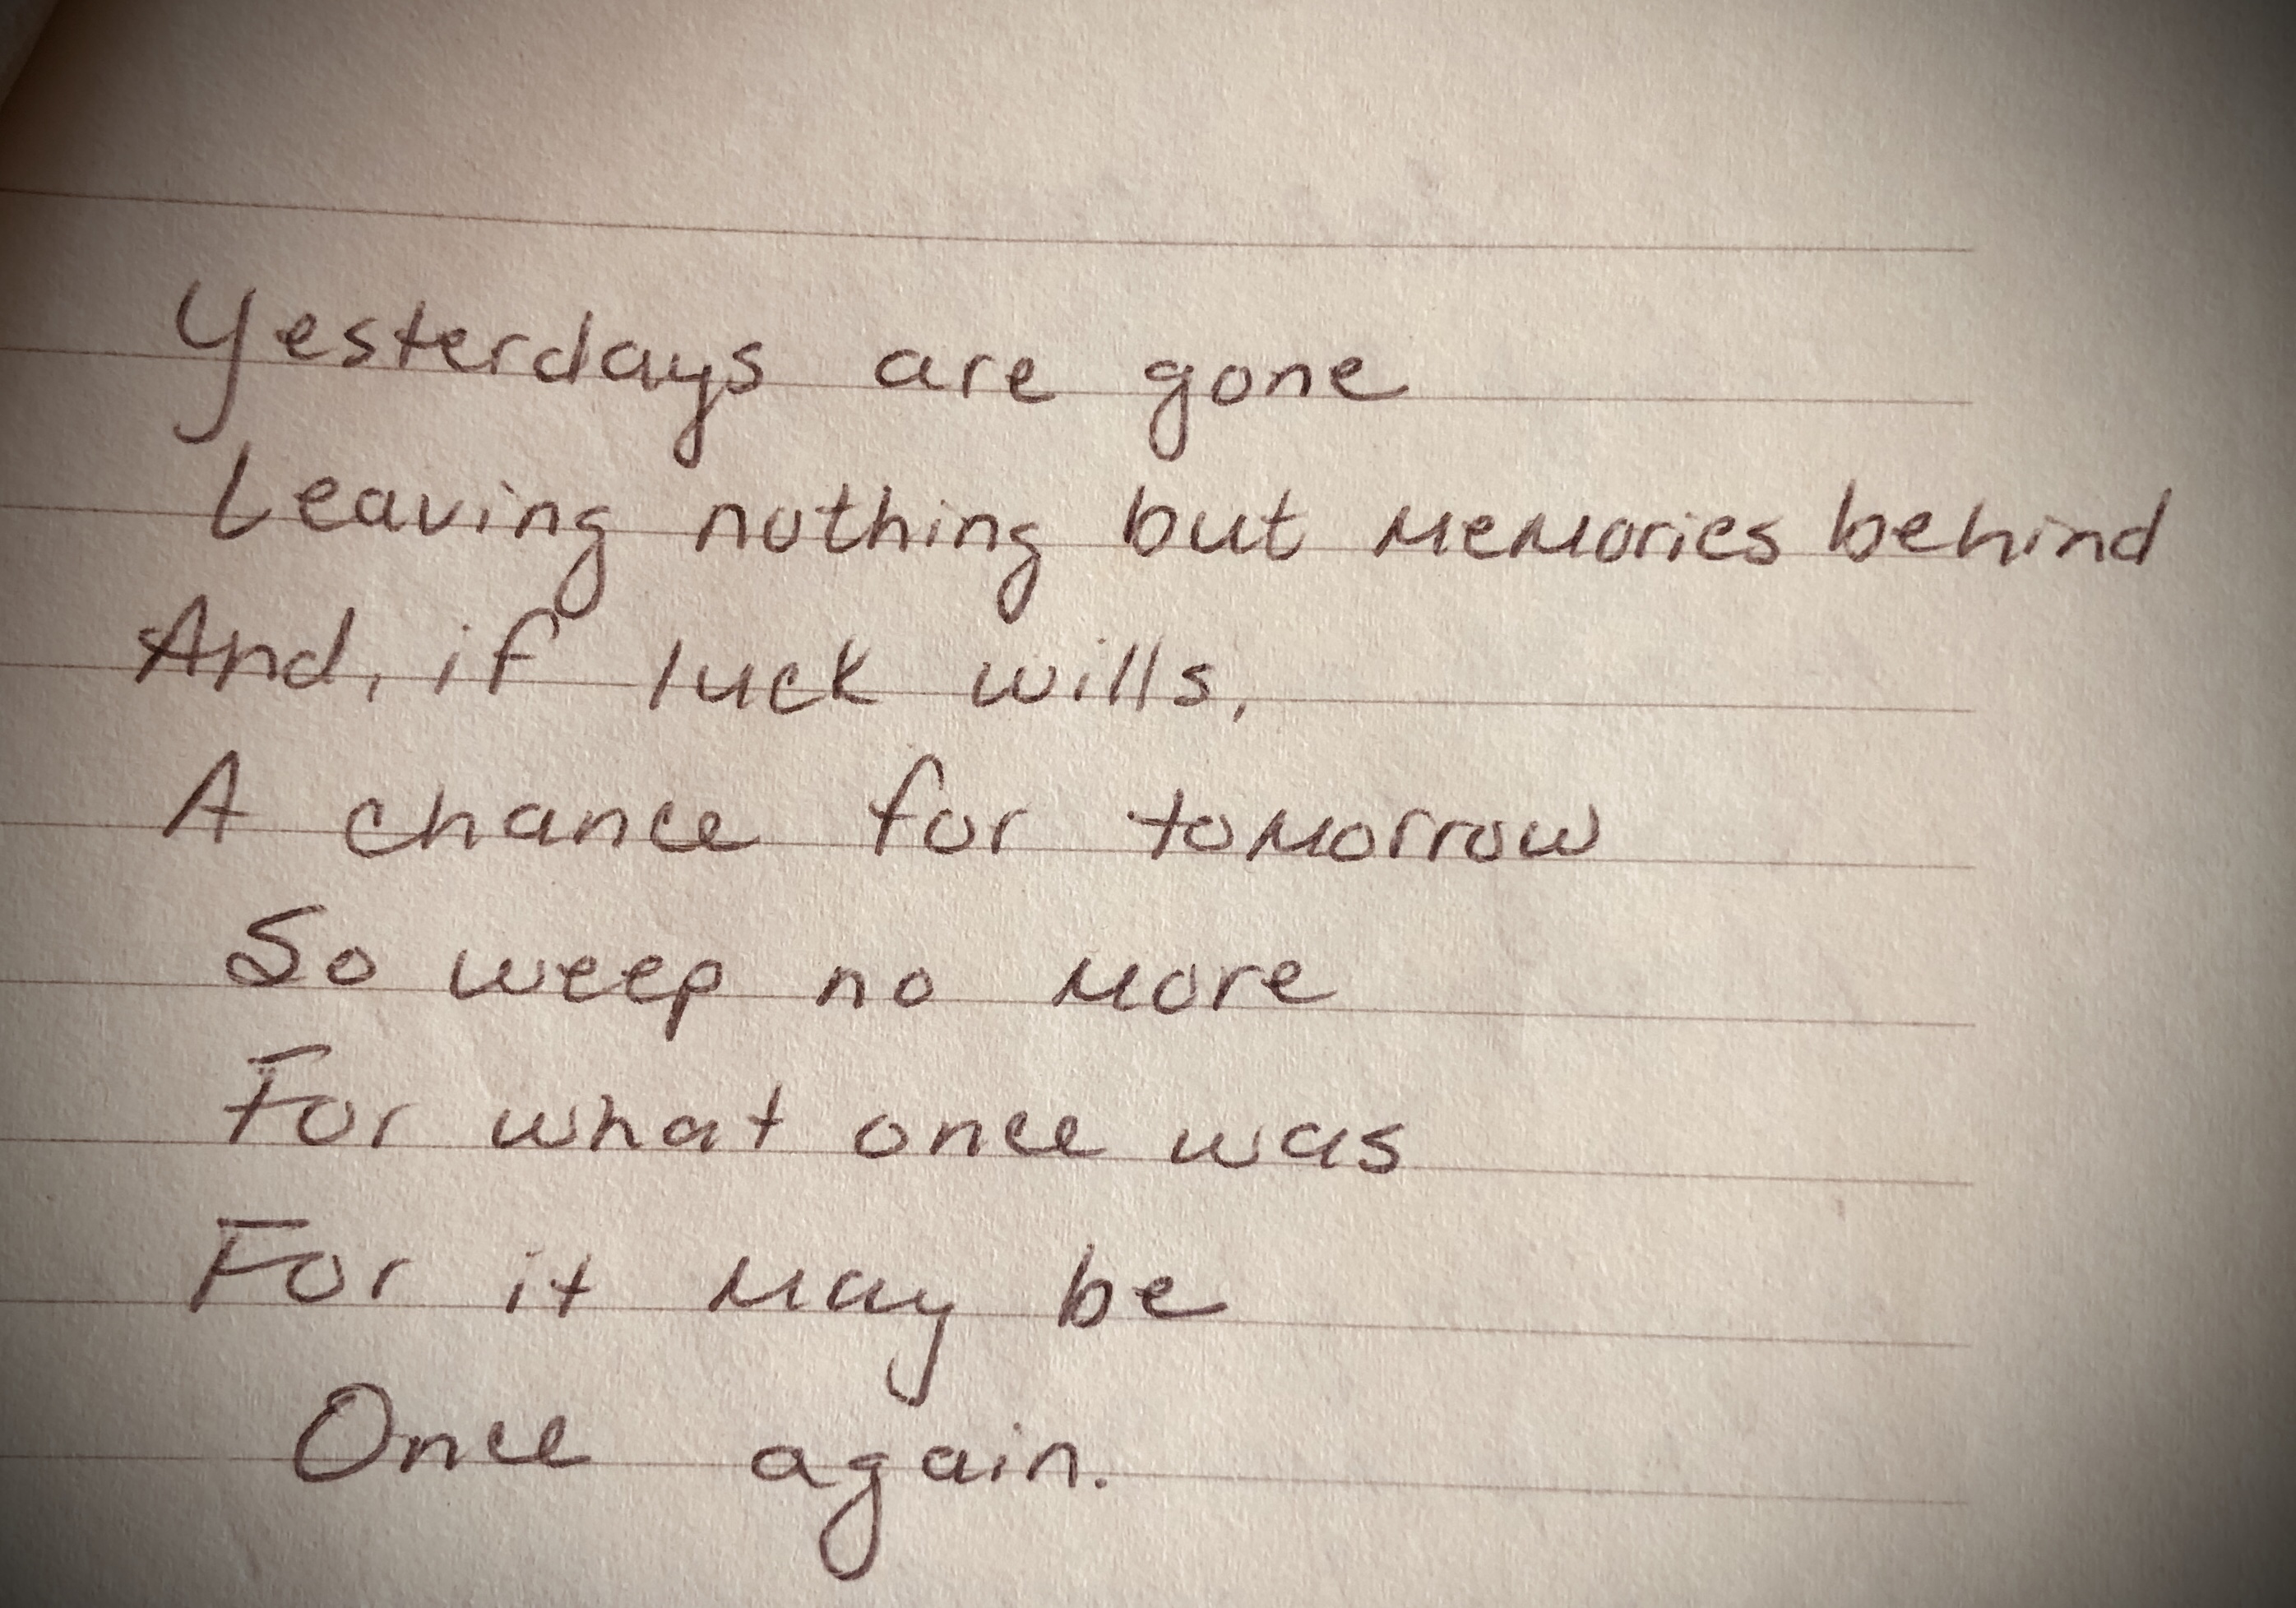 Yesterdays are gone
Leaving nothing but memories behind
And, if luck wills,
A chance for tomorrow
So weep no more
For what once was
For it may be
Once again.